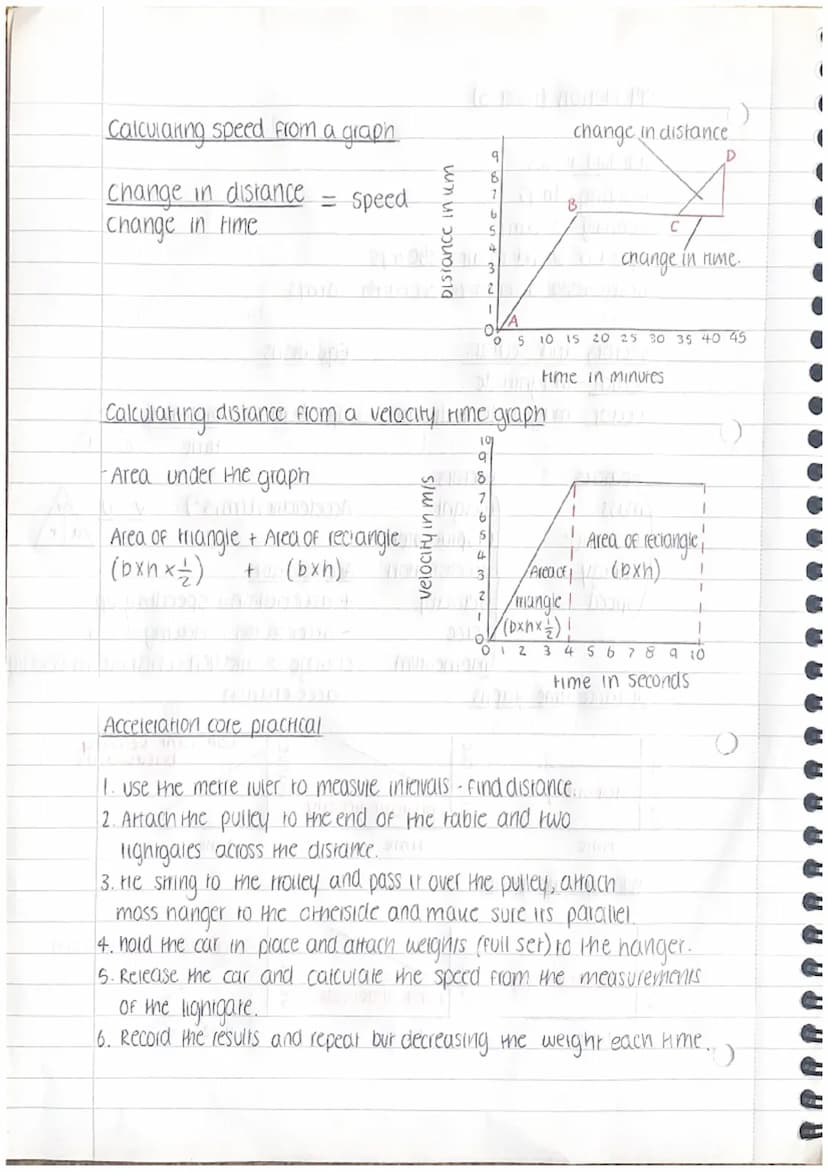 Calculating speed from a graph
change in distance
change in time
= speed
change in distance
Distance in um
9
8
7
6
5
4
3
2
1
0
A
B
C
D
change in time.
0 5 10 15 20 25 30 35 40 45
time in minutes
Calculating distance from a velocity time graph
- Area under the graph
Area of triangle + Area of rectangle
(b×h×½) + (b×h)
velocity in m/s
10
9
8
7
6
5
4
3
2
1
0
Area of
triangle
(b×h×½)
Area of rectangle
(b×h)
0 1 2 3 4 5 6 7 8 9 10
time in seconds
Acceleration core practical
1. use the metre ruler to measure intervals - find distance.
2. Attach the pulley to the end of the table and two
lightgates across the distance.
3. tie string to the trolley and pass it over the pulley, attach
mass hanger to the otherside and make sure its parallel.
4. hold the car in place and attach weights (full set) to the hanger.
5. Release the car and calculate the speed from the measurements
of the lightgate.
6. Record the results and repeat but decreasing the weight each time.